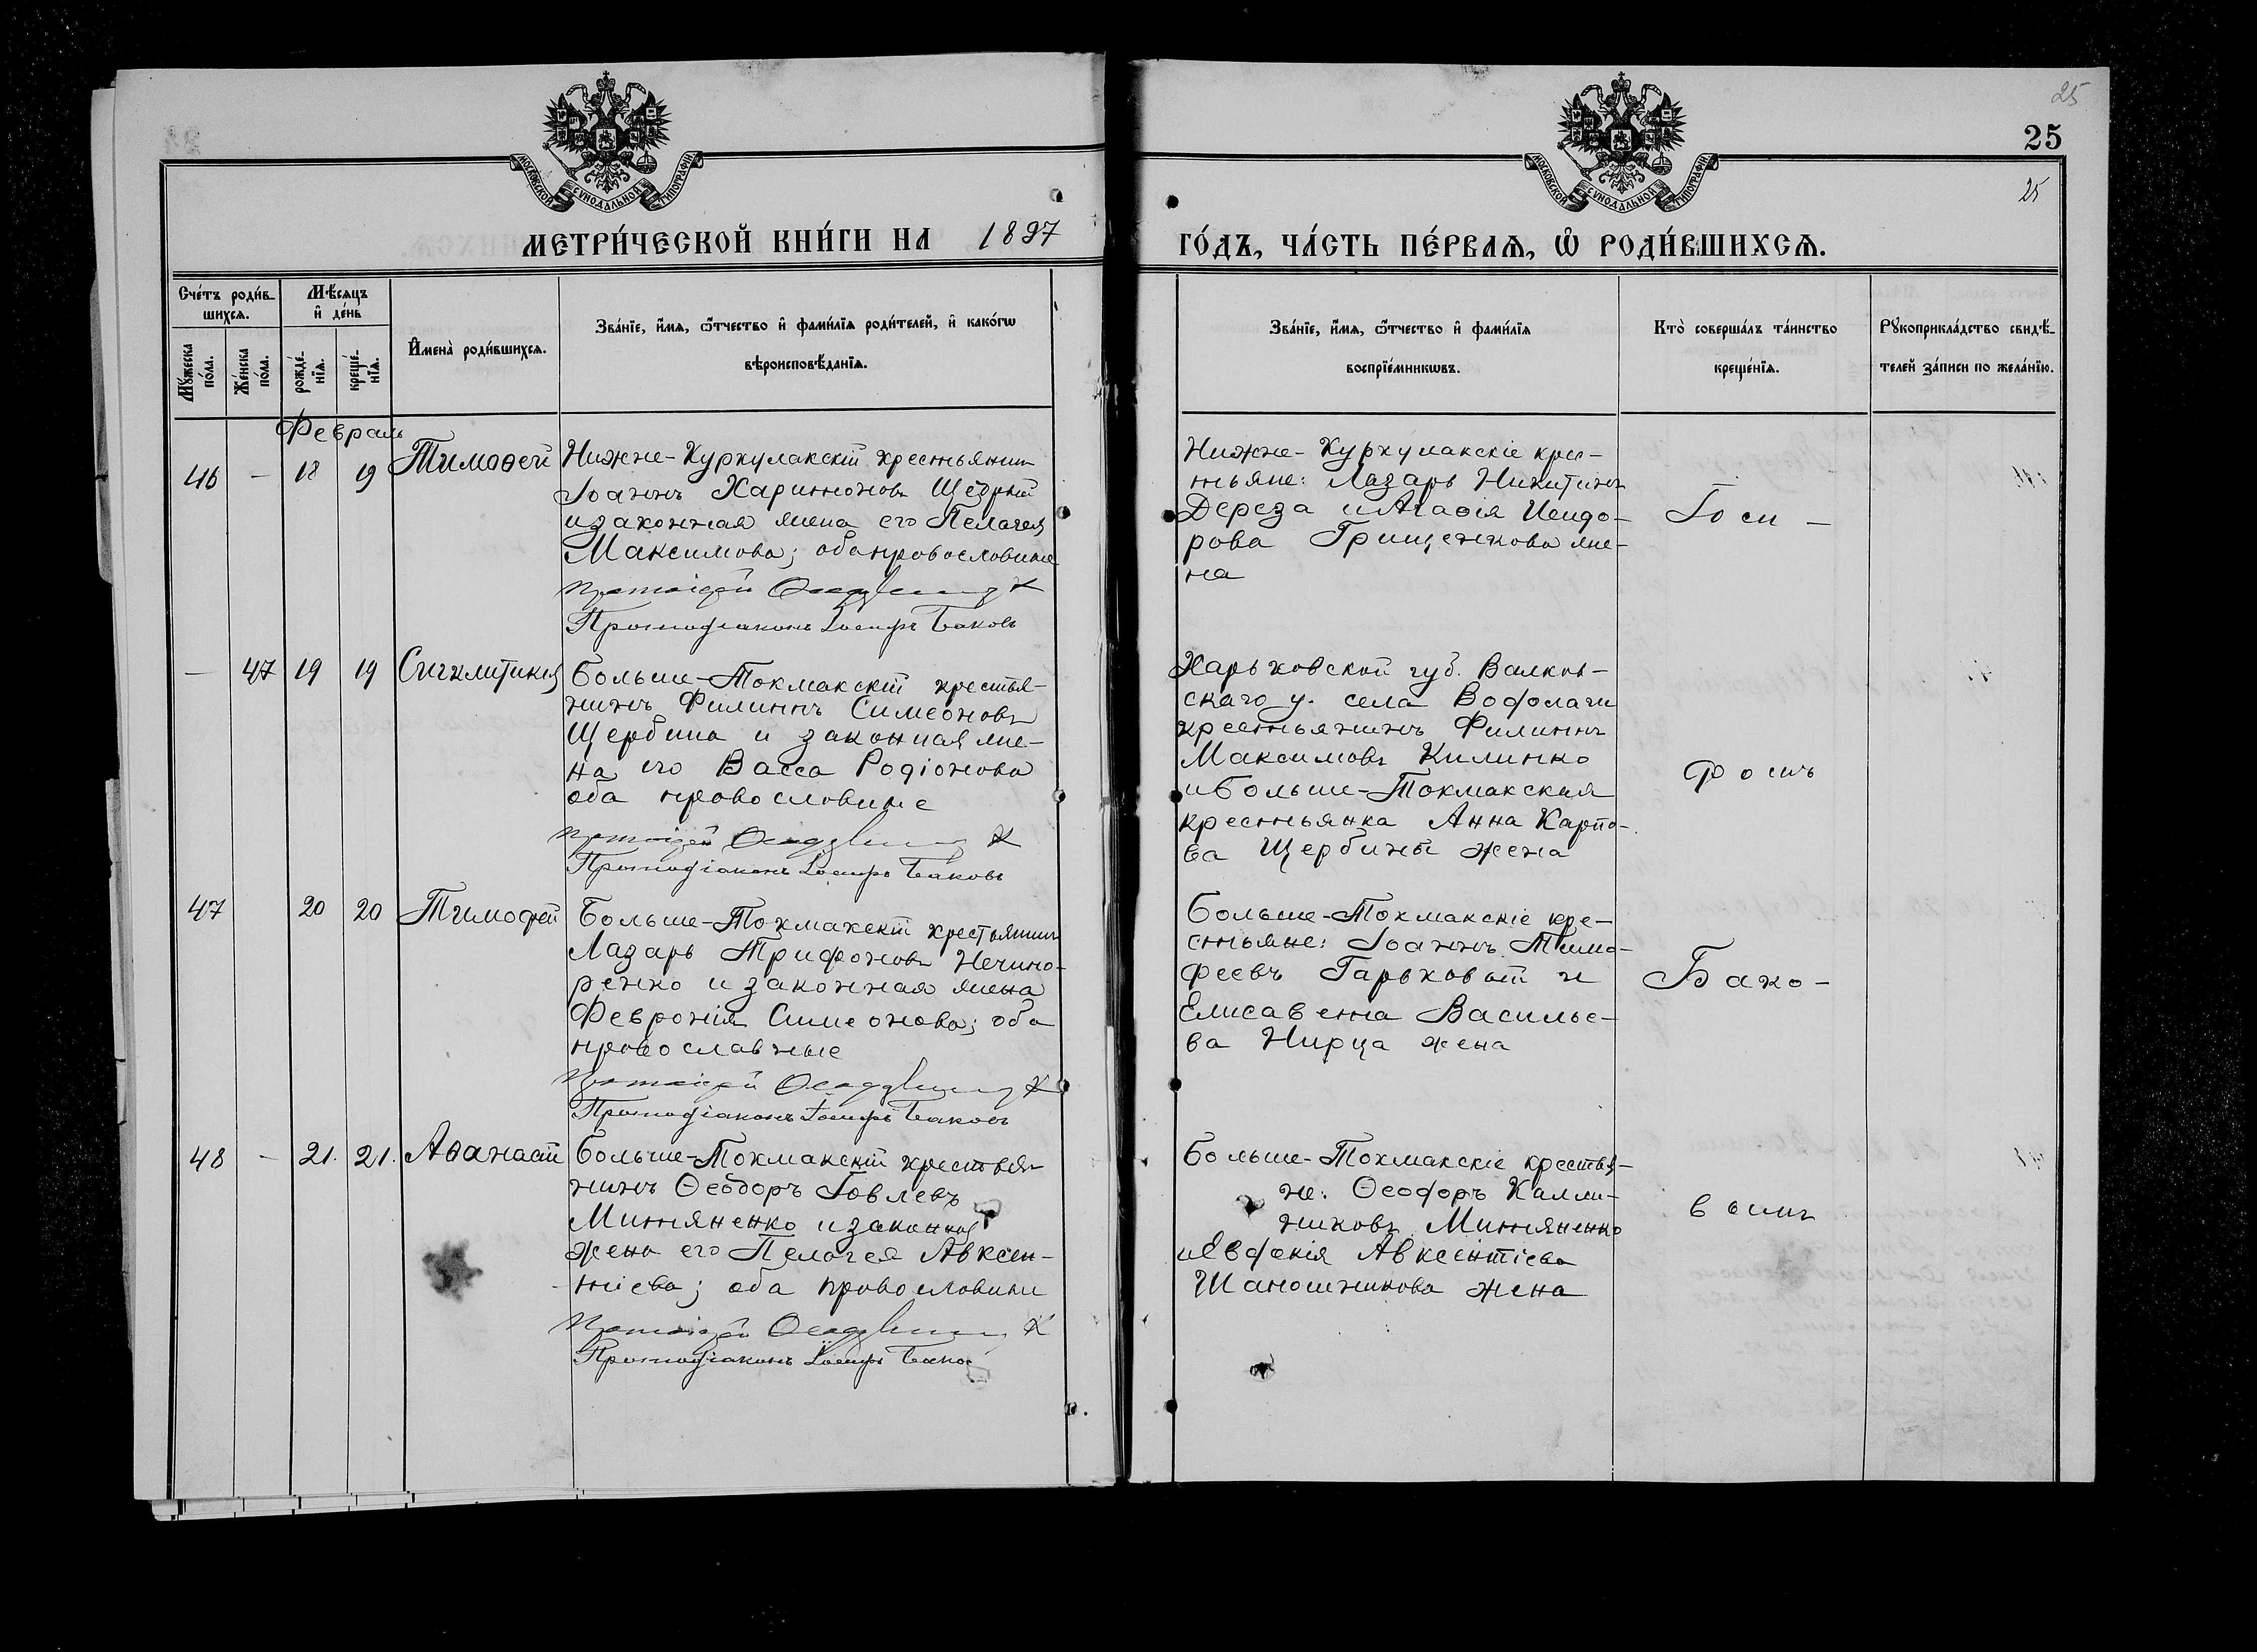 25
25
25
МОСКОВСКОЙ СѴНОДАЛЬНОЙ ТИПОГРАФІИ
МОСКОВСКОЙ СѴНОДАЛЬНОЙ ТИПОГРАФІИ
МЕТРИ́ЧЕСКОЙ КНИ́ГИ НА 1897
ГО́ДЪ, ЧА́СТЬ ПЕ́РВАѦ, Ѽ РОДИ́ВШИХСѦ.
Сче́тъ роди́в-
шихсѧ.
Мꙋ́жеска по́ла.
Же́нска по́ла.
Мѣ́сѧцъ
и҆ де́нь
рожде́-
нїѧ.
креще́-
нїѧ.
И҆мена̀ роди́вшихсѧ.
Зва́нїе, и҆́мѧ, ѻ҆́тчество и҆ фами́лїѧ роди́телей, и҆ како́гѡ
вѣроисповѣ́данїѧ.
Зва́нїе, и҆́мѧ, ѻ҆́тчество и҆ фами́лїѧ
воспрїе́мникѡвъ.
Кто̀ соверша́лъ та́инство
креще́нїѧ.
Рꙋкоприкла́дство свидѣ́-
телей за́писи по жела́нїю.
Февраль
46 - 18 19 Тимоѳей
Нижне-Куркулакскій крестьянин
Іоаннъ Харитоновъ Щедрый
и законная жена его Пелагея
Максимова; оба православные
Протоіерей
Протодіаконъ Іосифъ Баковъ
Нижне-Куркулакскіе крес-
тьяне: Лазарь Никитинъ
Дереза и Агаѳія Исидо-
рова Грищенкова же-
на
Іоси-
- 47 19 19 Сигклитикія
Больше-Токмакскій крестья-
нинъ Филиппъ Симеоновъ
Щербина и законная же-
на его Васса Родіонова
оба православные
Протоіерей
Протодіаконъ Іосифъ Баковъ
Харьковской губ. Валков-
скаго у. села Водолаги
крестьянинъ Филиппъ
Максимовъ Килипко
и Больше-Токмакская
крестьянка Анна Карпо-
ва Щербины жена
фомъ
47 20 20 Тимофей
Больше-Токмакскій крестьянинъ
Лазарь Трифоновъ Нечипо-
ренко и законная жена
Февронія Симеонова; оба
православные
Протоіерей
Протодіаконъ Іосифъ Баковъ
Больше-Токмакскіе кре-
стьяне: Іоаннъ Тимо-
феевъ Гарьковый и
Елисавета Василье-
ва Нирца жена
Бако-
48 - 21. 21. Аѳанасій
Больше-Токмакскій крестья-
нинъ Ѳеодоръ Іовлевъ
Митяненко и законная
жена его Пелагея Авксен-
тіева; оба православные
Протоіерей
Протодіаконъ Іосифъ Баковъ
Больше-Токмакскіе крестья-
не: Ѳеодоръ Калли-
никовъ Митяненко
и Евфенія Авксентіева
Шапошникова жена
вымъ